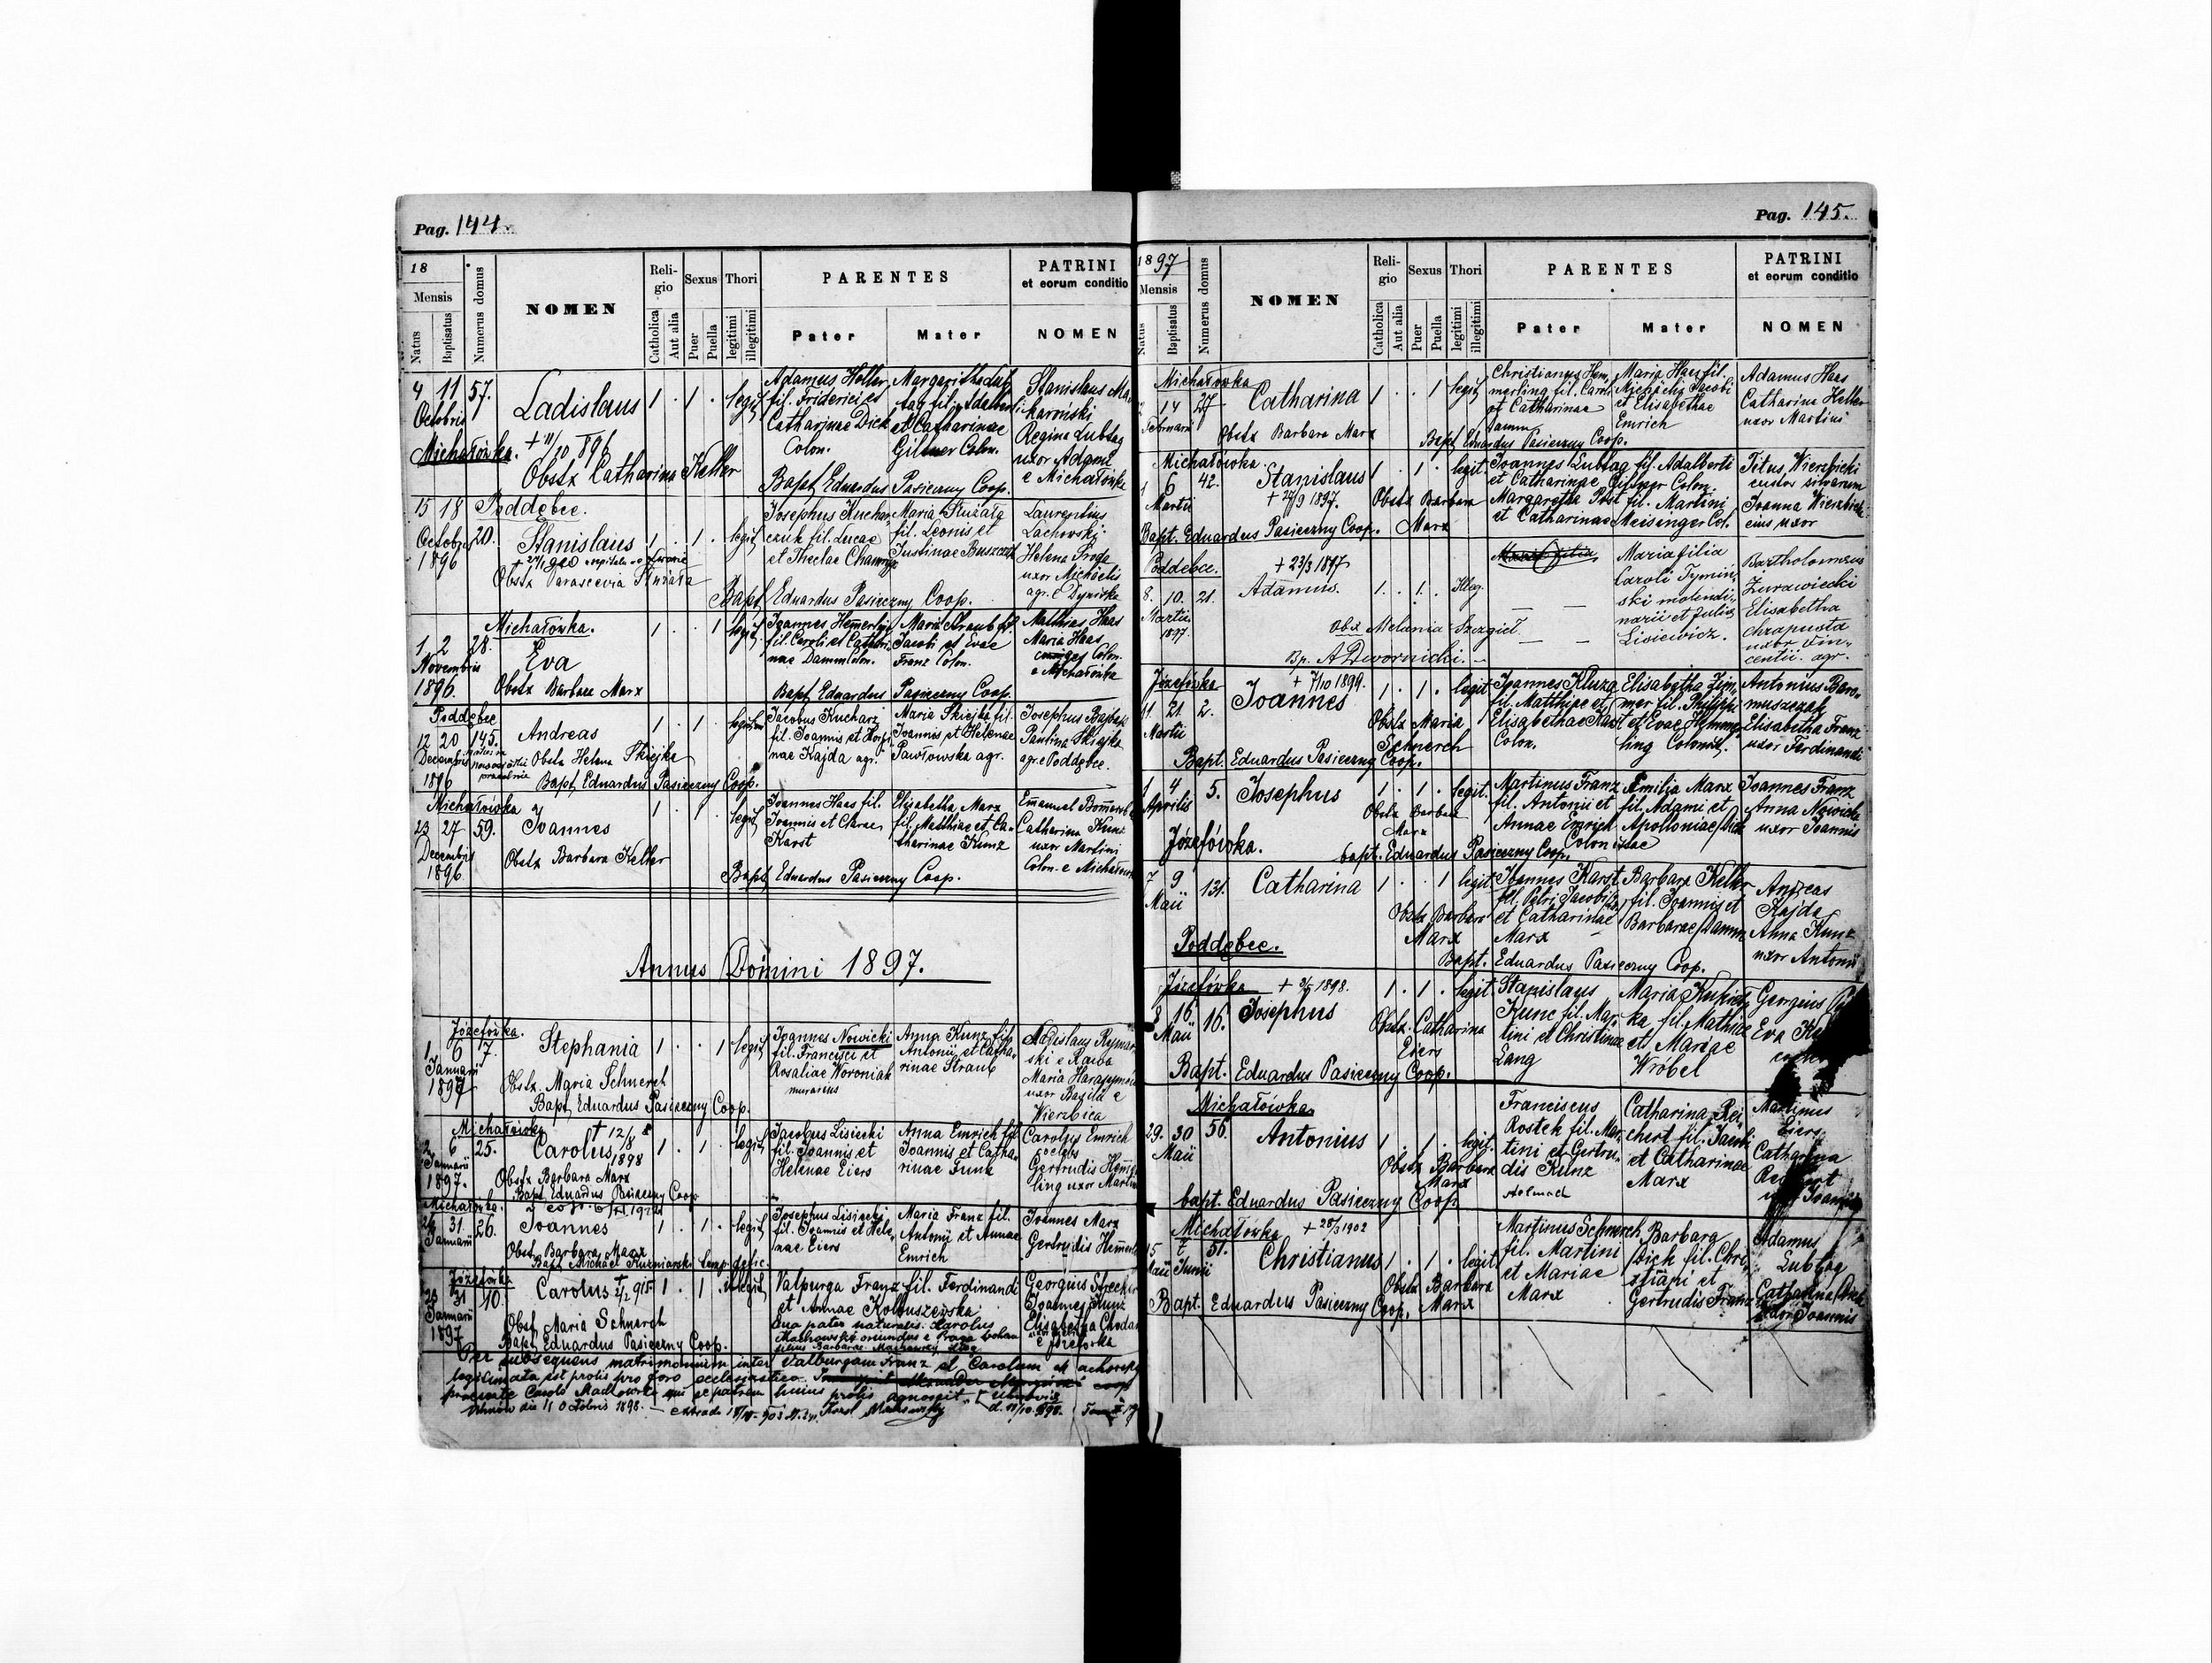 Pag. 144.
18
Mensis
Natus
Baptisatus
Numerus domus
NOMEN
Reli-
gio
Catholica
Aut alia
Sexus
Puer
Puella
Thori
legitimi
illegitimi
PARENTES
Pater
Mater
PATRINI
et eorum conditio
NOMEN
4 11 57.
Octobris
Michałówka.
Ladislaus
Obstx Catharina Keller
1 . 1 . legit
Adamus Heller
fil. Friderici et
Catharinae Dick
Colon.
et Catharinae
Gillner Colon.
Bapt Eduardus Pasieczny Coop.
Stanislaus
Regina Lubtag
uxor Adami
e Michałówka
15 18 Poddębce.
Octobris 20.
1896
Stanislaus
Obstx Parascevia Służała
1 . 1 . legit
Josephus Kuchar-
czuk fil. Lucae
et Theclae
Maria Służała
fil. Leonis et
Justinae
Bapt Eduardus Pasieczny Coop.
Laurentius
Lachowski
Helena
uxor Michaelis
agr. e
Michałówka.
1 2 28.
Novembris
1896.
Eva
Obstx Barbara Marx
1 . . 1 legit
Joannes Hemerling
fil. Caroli et Cathari-
nae Damm Colon.
Maria Straub fil.
Jacobi et Evae
Franz Colon.
Bapt Eduardus Pasieczny Coop.
Matthias Haas
Maria Haas
Colon.
e Michałówka
Poddębce
12 20 145.
Decembris
1896
Andreas
Obstx Helena Skiejka
Bapt Eduardus Pasieczny Coop.
1 . 1 . legitim
Jacobus Kucharz
fil. Joannis et
nae Kajda agr.
Maria Skiejka fil.
Joannis et Helenae
Pawłowska agr.
Josephus
Paulina Skiejka
agr. e Poddębce.
Michałówka
23 27 59.
Decembris
1896
Joannes
Obstx Barbara Keller
1 . 1 . legit
Joannes Haas fil.
Joannis et Clarae
Karst
Elisabetha Marx
fil. Matthiae et Ca-
tharinae Kunz
Bapt Eduardus Pasieczny Coop.
Emanuel
Catharina Kunz
uxor Martini
Colon. e Michałówka
Annus Domini 1897.
Józefówka.
1 6 17.
Januarii
1897
Stephania
Obstx. Maria Schnerch
Bapt Eduardus Pasieczny Coop.
1 . . 1 legit
Joannes Nowicki
fil. Francisci et
Rosaliae Woroniak
murarius
Anna Kunz fil.
Antonii et Catha-
rinae Straub
Ladislaus
ski e Rawa
Maria
uxor Basilii e
Wierzbica
Michałówka
2 6 25.
Januarii
1897.
† 12/8
Carolus 1898
Obstx Barbara Marx
Bapt Eduardus Pasieczny Coop.
1 . 1 . legit
Jacobus Lisiecki
fil. Joannis et
Helenae Eiers
Anna Emrich fil.
Joannis et Catha-
rinae Funk
Carolus Emrich
Gertrudis Hemer-
ling uxor Martini
Michałówka.
26 31. 26.
Januarii
Joannes
Obst. Barbara Marx
Bapt Michael Kuzniarski
1 . 1 . legit
Josephus Lisiecki
fil. Joannis et Hele-
nae Eiers
Maria Franz fil.
Antonii et Annae
Emrich
Joannes Marx
Gertrudis
Józefówka
23 31 10.
Januarii
1897
Carolus
Obst Maria Schnerch
Bapt Eduardus Pasieczny Coop.
1 . 1 . illegit
Valpurga Franz fil. Ferdinandi
et Annae Kolbuszewska
Sua pater naturalis: Carolus
Machowski oriundus e Praga
filius Barbarae
Georgius Strecker
Joannes Kunz
Elisabetha
e Józefówka
Per subsequens matrimonium inter Valburgam Franz et Carolum Machowsky
legitimata est prolis pro foro ecclesiastico
praesente Carolo Machowsky qui se patrem huius prolis agnoscit
Uhnów die 11 Octobris 1898.
Karol Machowsky
Pag. 145.
1897
Mensis
Natus
Baptisatus
Numerus domus
NOMEN
Reli-
gio
Catholica
Aut alia
Sexus
Puer
Puella
Thori
legitimi
illegitimi
PARENTES
Pater
Mater
PATRINI
et eorum conditio
NOMEN
Michałówka
14 27
Februarii
Catharina
Obstx Barbara Marx
1 . . 1 legit
Christianus Hem-
merling fil. Caroli
et Catharinae
Damm
Maria Haas fil.
Michaelis Jacobi
et Elisabethae
Emrich
Bapt Eduardus Pasieczny Coop.
Adamus Haas
Catharina Heller
uxor Martini
Michałówka.
1 6 42.
Martii
Stanislaus
† 24/9 1897.
Obstx Barbara
Marx
Bapt. Eduardus Pasieczny Coop.
1 . 1 . legit.
Joannes Lubtag fil. Adalberti
et Catharinae Gillner Colon.
Margaretha Post fil. Martini
et Catharinae Meisenger Col.
Titus Wierzbicki
custos silvarum
Joanna Wierzbicki
eius uxor
Poddębce.
8. 10. 21.
Martii
1897.
† 23/3 1897
Adamus.
1 . 1 . Illeg.
Obst Melania Szczgiel
Bp. A Dwornicki.
Maria filia
Caroli Tymiń-
ski molendi-
narii et Julia
Lisiewicz.
Bartholomeus
Żurawiecki
Elisabetha
Chrapusta
uxor Vin-
centii. agr.
Józefówka
11. 21. 2.
Martii
† 7/10 1899.
Joannes
Obstx Maria
Schnerch
Bapt. Eduardus Pasieczny Coop.
1 . 1 . legit
Joannes Kluza
fil. Matthiae et
Elisabethae Karst
Colon.
Elisabetha Zim-
mer fil. Philippi
et Evae Hemmer-
ling Colonis.
Antonius Baro-
muszczak
Elisabetha Franz
uxor Ferdinandi
1 4 5.
Aprilis
Józefówka.
Josephus
Obstx Barbara
Marx
bapt. Eduardus Pasieczny Coop.
1 . 1 . legit.
Martinus Franz
fil. Antonii et
Annae Emrich
Emilia Marx
fil. Adami et
Apolloniae Dick
Colonistae
Joannes Franz
Anna Nowicka
uxor Joannis
7 9 131.
Maii
Poddębce.
Catharina
Obstx Barbara
Marx
1 . . 1 legit
Joannes Karst
fil. Petri Jacobi
et Catharinae
Marx
Barbara Keller
fil. Joannis et
Barbarae Damm
Bapt. Eduardus Pasieczny Coop.
Andreas
Kajda
Anna Kunz
uxor Antonii
Józefówka
8 16 16.
Maii
Josephus
Obstx. Catharina
Eiers
Bapt. Eduardus Pasieczny Coop.
1 . 1 . legit.
Stanislaus
Kunc fil. Mar-
tini et Christinae
Lang
Maria
ka fil. Mathiae
et Mariae
Wrobel
Georgius
Eva
Michałówka
29. 30 56.
Maii
Antonius
Obstx Barbara
Marx
bapt. Eduardus Pasieczny Coop.
1 . 1 . legit.
Franciscus
Rostek fil. Mar-
tini et Gertru-
dis Kunz
stelmach
Catharina Rei-
chert fil. Jacobi
et Catharinae
Marx
Martinus
Eiers
Catharina
Joannis
Michałówka
15 7 51.
Maii Junii
† 28/3 1902
Christianus
Obstx Barbara
Marx
Bapt. Eduardus Pasieczny Coop.
1 . 1 . legit
Martinus Schnerch
fil. Martini
et Mariae
Marx
Barbara
Dick fil. Chri-
stiani et
Gertrudis Franz
Adamus
Lubtag
Catharina Dick
uxor Joannis